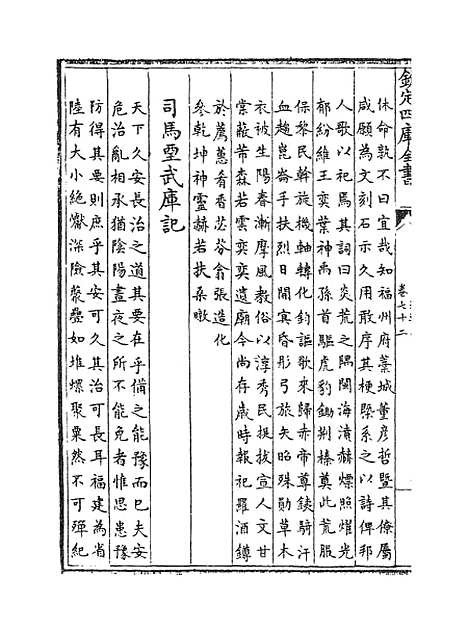 欽定四庫全書
卷七十二
休命孰不曰宜哉知福州府藁城董彦哲暨其僚屬
咸願為文刻石示久用敢序其梗槩系之以詩俾邦
人歌以祀焉其詞曰炎荒之隅閩海濆赫熛照燿光
郁紛維王奕葉神禹孫首驅虎豹鋤荆榛奠此荒服
保黎民斡旋機軸轉化鈞謳歌來歸赤帝尊鋏騎汗
血趨崑崙手扶烈日開㝠昏彤弓旅矢昭殊勛草木
衣被生陽春漸摩風教俗以淳秀民挺拔宣人文甘
棠蔽芾森若雲奕奕遺廟今尚存歳時報祀羅酒鐏
於薦蕙肴看苾芬俞張造化
參乾坤神靈赫若扶桑暾
司馬堊武庫記
天下久安長治之道其要在乎備之能豫而已夫安
危治亂相承猶陰陽晝夜之所不能免者惟思患豫
防得其要則庶乎其安可久其治可長耳福建為省
陸有大小絶嶽深險磬壘如堆螺聚粟然不可殫紀